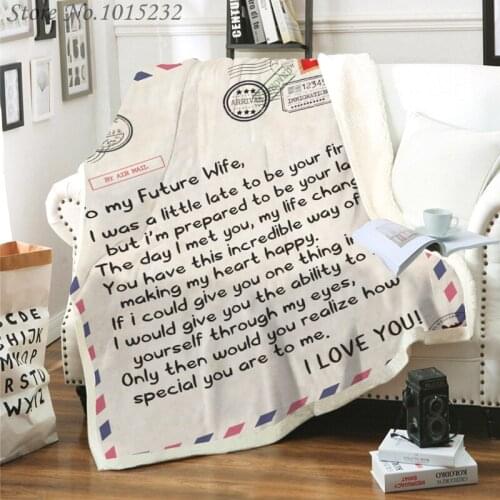 Store No.1015232
ARRIVAL
12345
IMMIGRATION
BY AIR MAIL
o my Future Wife,
I was a little late to be your fir
but i'm prepared to be your la
The day I met you, my life chang
You have this incredible way of
making my heart happy.
If i could give you one thing i
I would give you the ability to
yourself through my eyes,
Only then would you realize how
special you are to me.
I LOVE YOU!